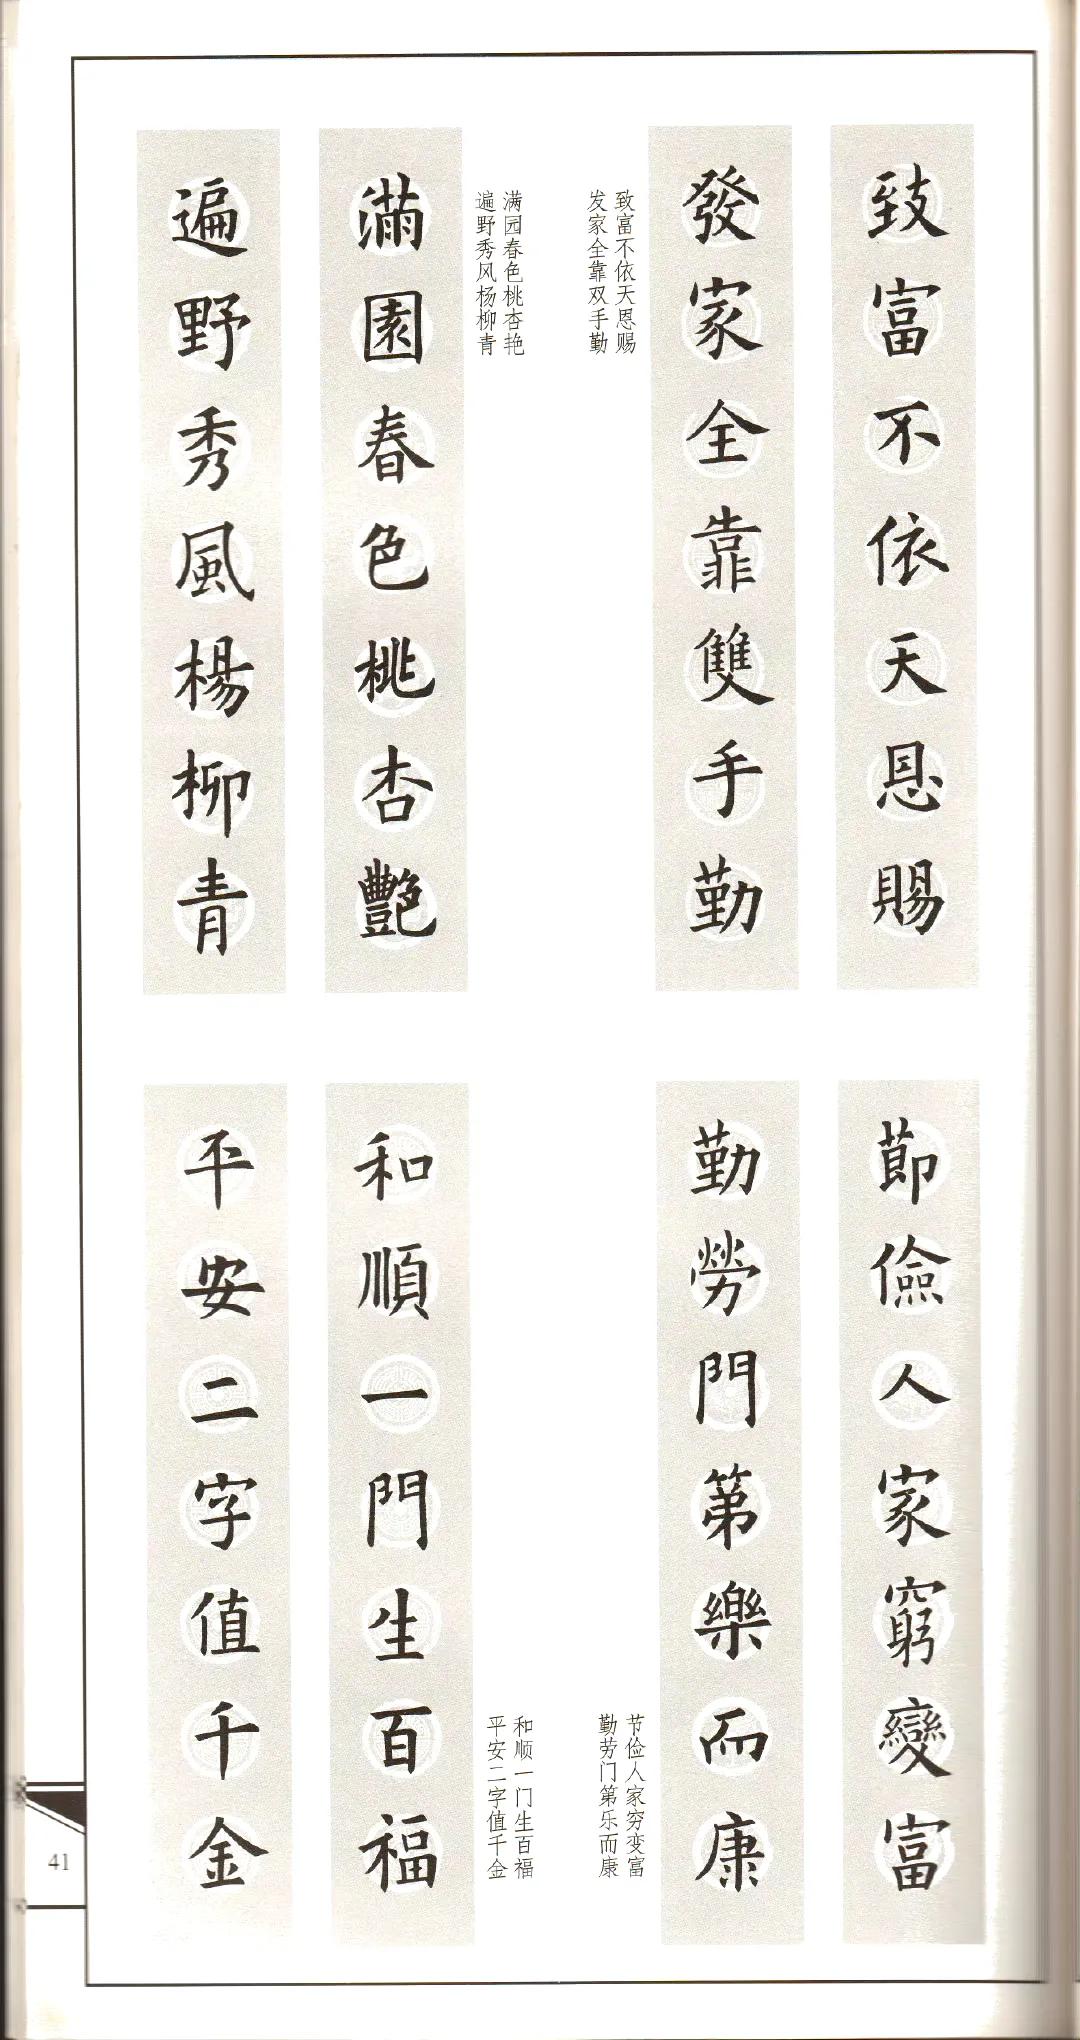 致富不依天恩賜
發家全靠雙手勤
致富不依天恩赐
发家全靠双手勤
滿園春色桃杏艷
遍野秀風楊柳青
满园春色桃杏艳
遍野秀风杨柳青
節儉人家窮變富
勤勞門第樂而康
节俭人家穷变富
勤劳门第乐而康
和順一門生百福
平安二字值千金
和顺一门生百福
平安二字值千金
41